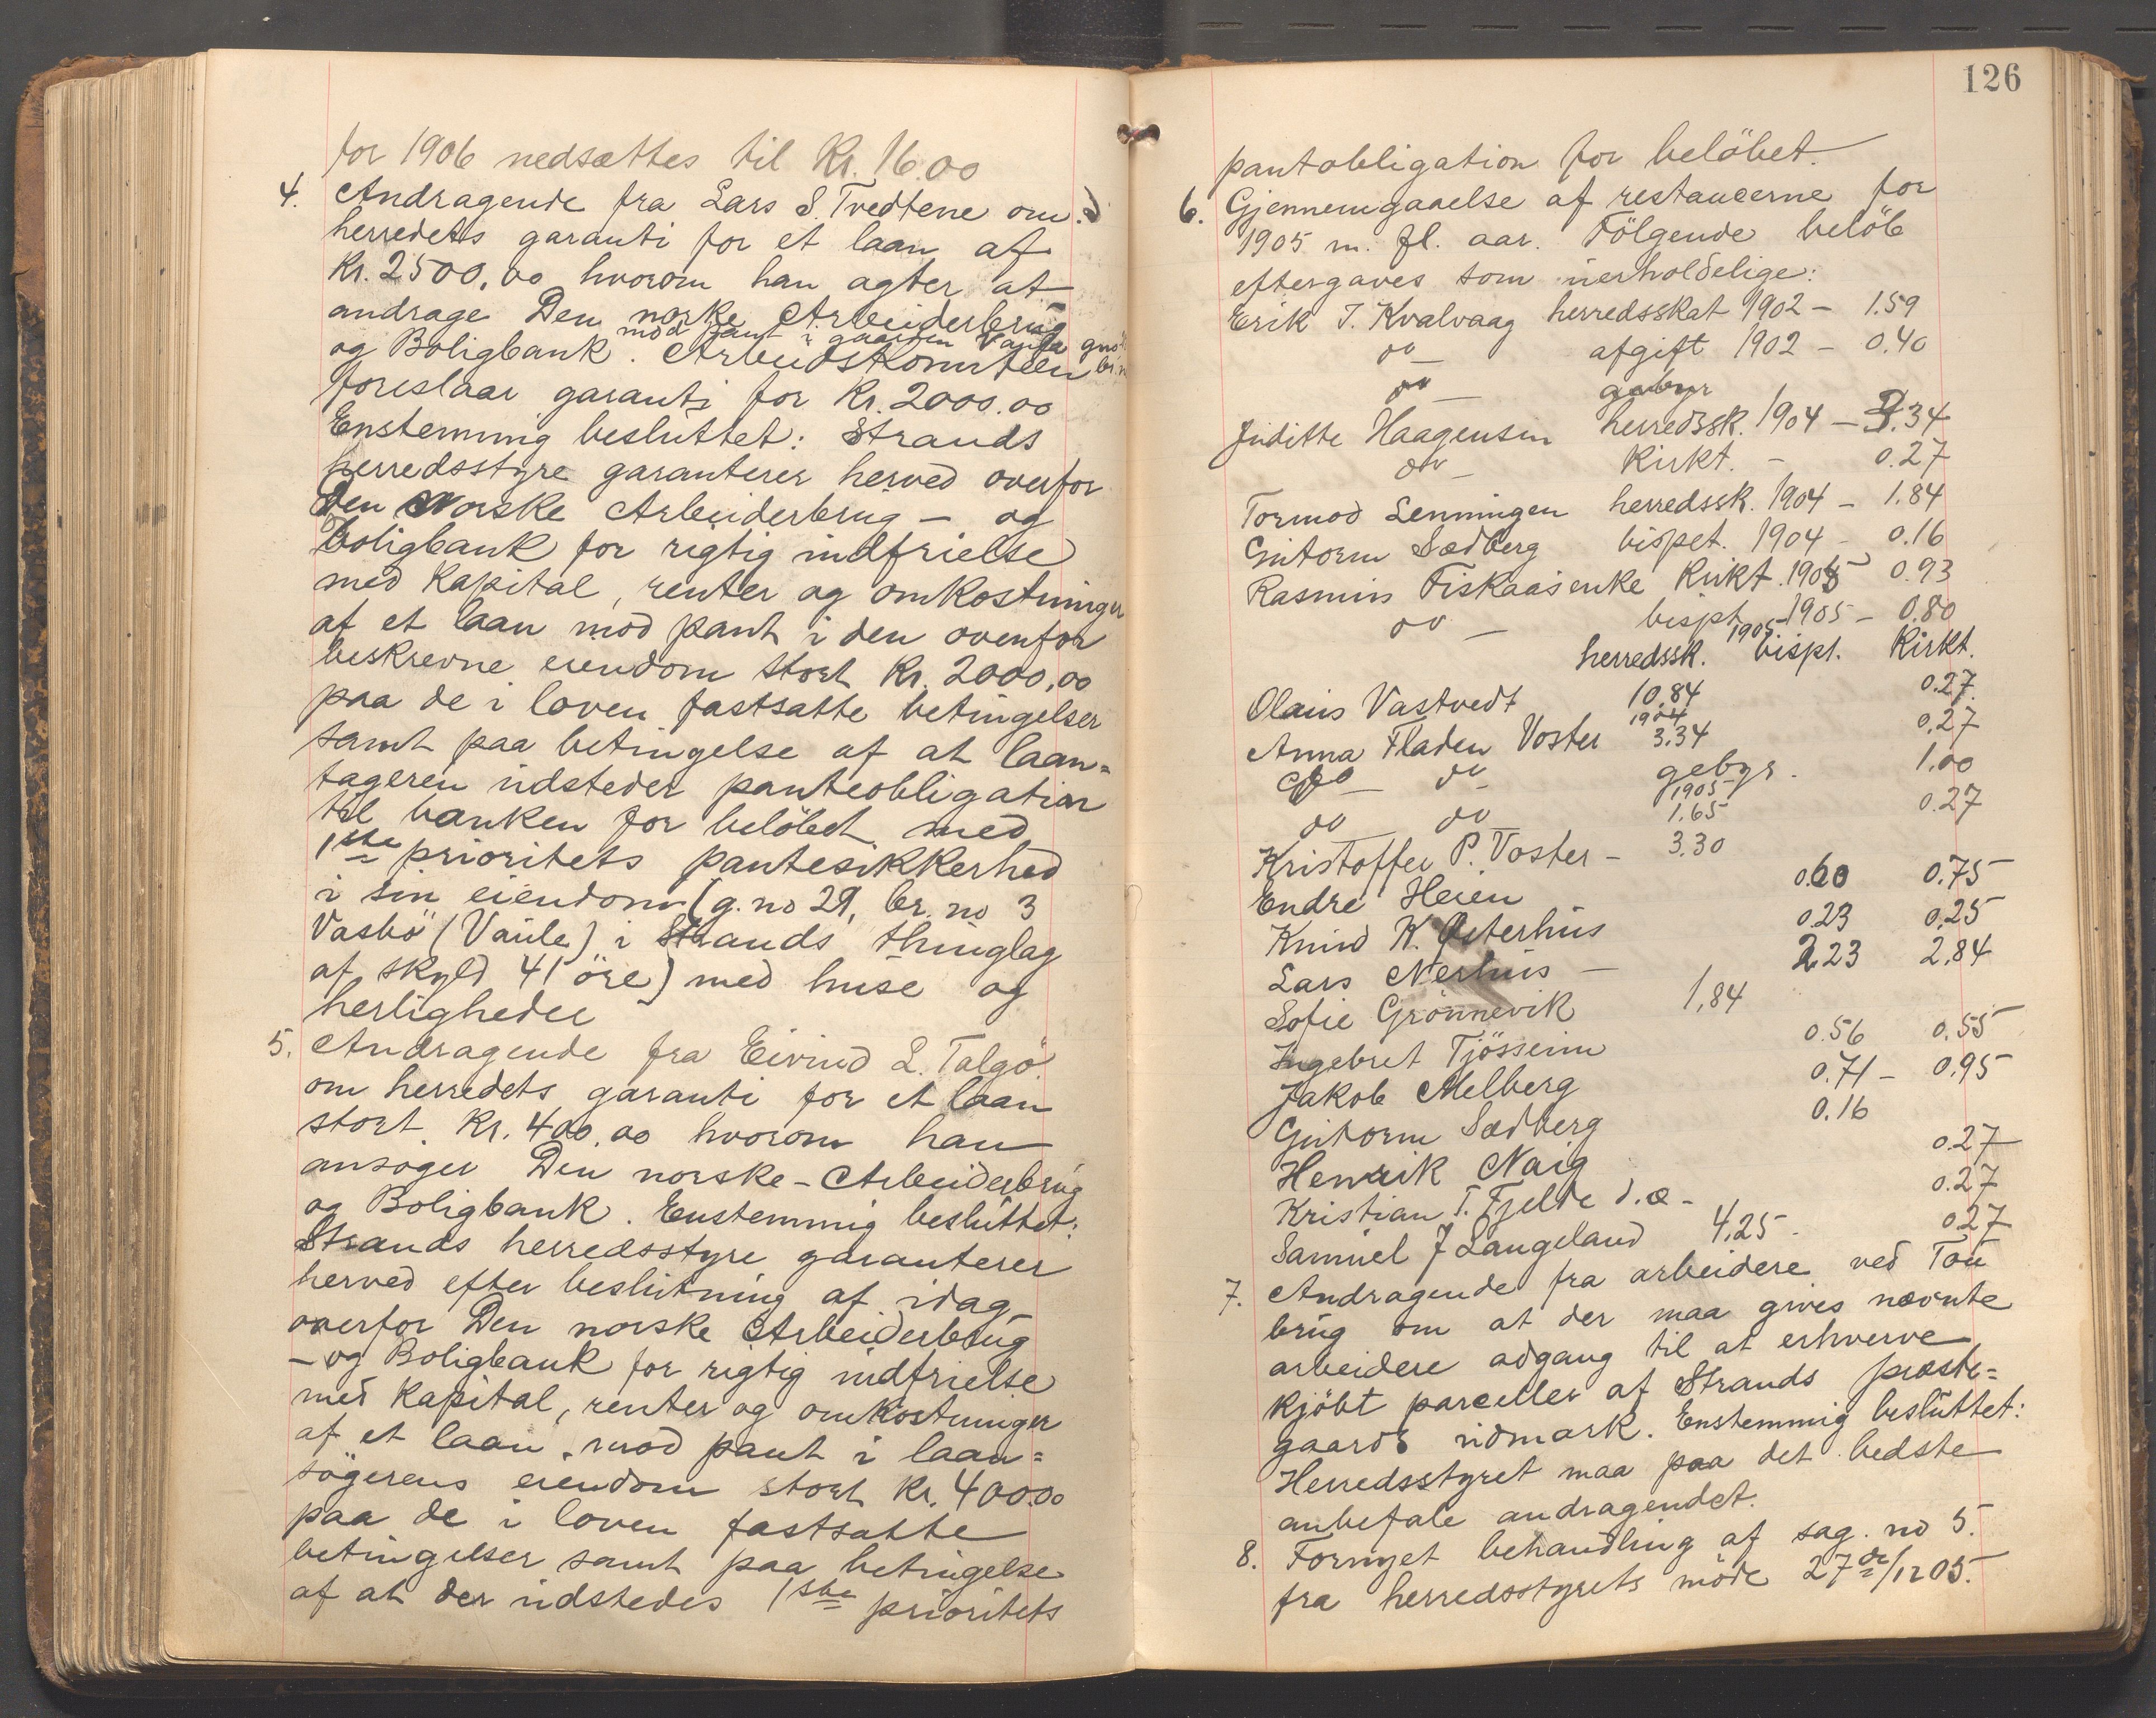 for 1906 nedsættes til Kr. 16.00
4. Andragende fra Lars S. Tvedtene om
herredets garanti for et laan af
Kr. 2500,00 hvorom han agter at
andrage Den norske Arbeiderbrug
mod pant i gaarden
og Boligbank. Arbeidskomiteen
foreslaar garanti for Kr. 2000.00
Enstemmig besluttet: Strands
herredsstyre garanterer herved overfor
Den Norske Arbeiderbrug - og
Boligbank for rigtig indfrielse
med Kapital, renter og omkostninger
af et laan mod pant i den ovenfor
beskrevne eiendom stort Kr. 2000,00
paa de i loven fastsatte betingelser
samt paa betingelse af at laan=
tageren udsteder panteobligation
til banken for belöbet med
1ste prioritets pantesikkerhed
i sin eiendom (g. no 29, br. no 3
Vasbö (Vaule) i Strands thinglag
af skyld 41 öre) med huse og
herligheder
5. Andragende fra Eivind L. Talgö
om herredets garanti for et laan
stort Kr. 400,00 hvorom han
ansøger Den norske - Arbeiderbrug
og Boligbank. Enstemmig besluttet:
Strands herredsstyre garanterer
herved efter beslutning af idag
overfor Den norske Arbeiderbrug
- og Boligbank for rigtig indfrielse
med Kapital, renter og omkostninger
af et laan mod pant i laan=
søgerens eiendom stort Kr. 400.00
paa de i loven fastsatte
betingelser samt paa betingelse
af at der udstedes 1ste prioritets
126
pantobligation for belöbet.
6. Gjennemgaaelse af restancerne for
1905 m. fl. aar. Fölgende belöb
eftergaves som uerholdelige:
Erik T. Kvalvaag herredsskat 1902 - 1.59
do - afgift 1902 - 0.40
do - gebyr
Juditte Haagensen herredssk. 1904 - 3.34
do - Kirkt. - 0.27
Tormod Lenningen herredssk. 1904 - 1.84
Gutorm Sædberg bispet. 1904 - 0.16
Rasmus Fiskaasenke Kirkt. 1905 0.93
do - bispt. 1905 - 0.80
1905
herredssk. bispt. Kirkt.
Olaus Vastvedt 10.84 0.27.
1904
Anna Fladen Voster 3.34 0.27
do - do - gebyr. 1.00
1905
do do 1.65 0.27
Kristoffer P. Voster - 3.30
Endre Heien 0.60 0.75
Knud K. Østerhus 0.23 0.25
Lars Nerhus - 2.23 2.84
Sofie Grönnevik 1.84
Ingebret Tjösseim 0.56 0.55
Jakob Melberg 0.71 - 0.95
Gutorm Sædberg 0.16
Henrik Naig 0.27
Kristian T. Fjelde d.æ - 0.27
Samuel J Langeland 4.25 - 0.27
7. Andragende fra arbeidere ved Tau
brug om at der maa gives nævnte
arbeidere adgang til at erhverve
kjöbt parceller af Strands præste=
gaards udmark. Enstemmig besluttet:
Herredsstyret maa paa det bedste
anbefale andragendet.
8. Fornyet behandling af sag no 5.
fra herredsstyrets möde 27de/12 05.